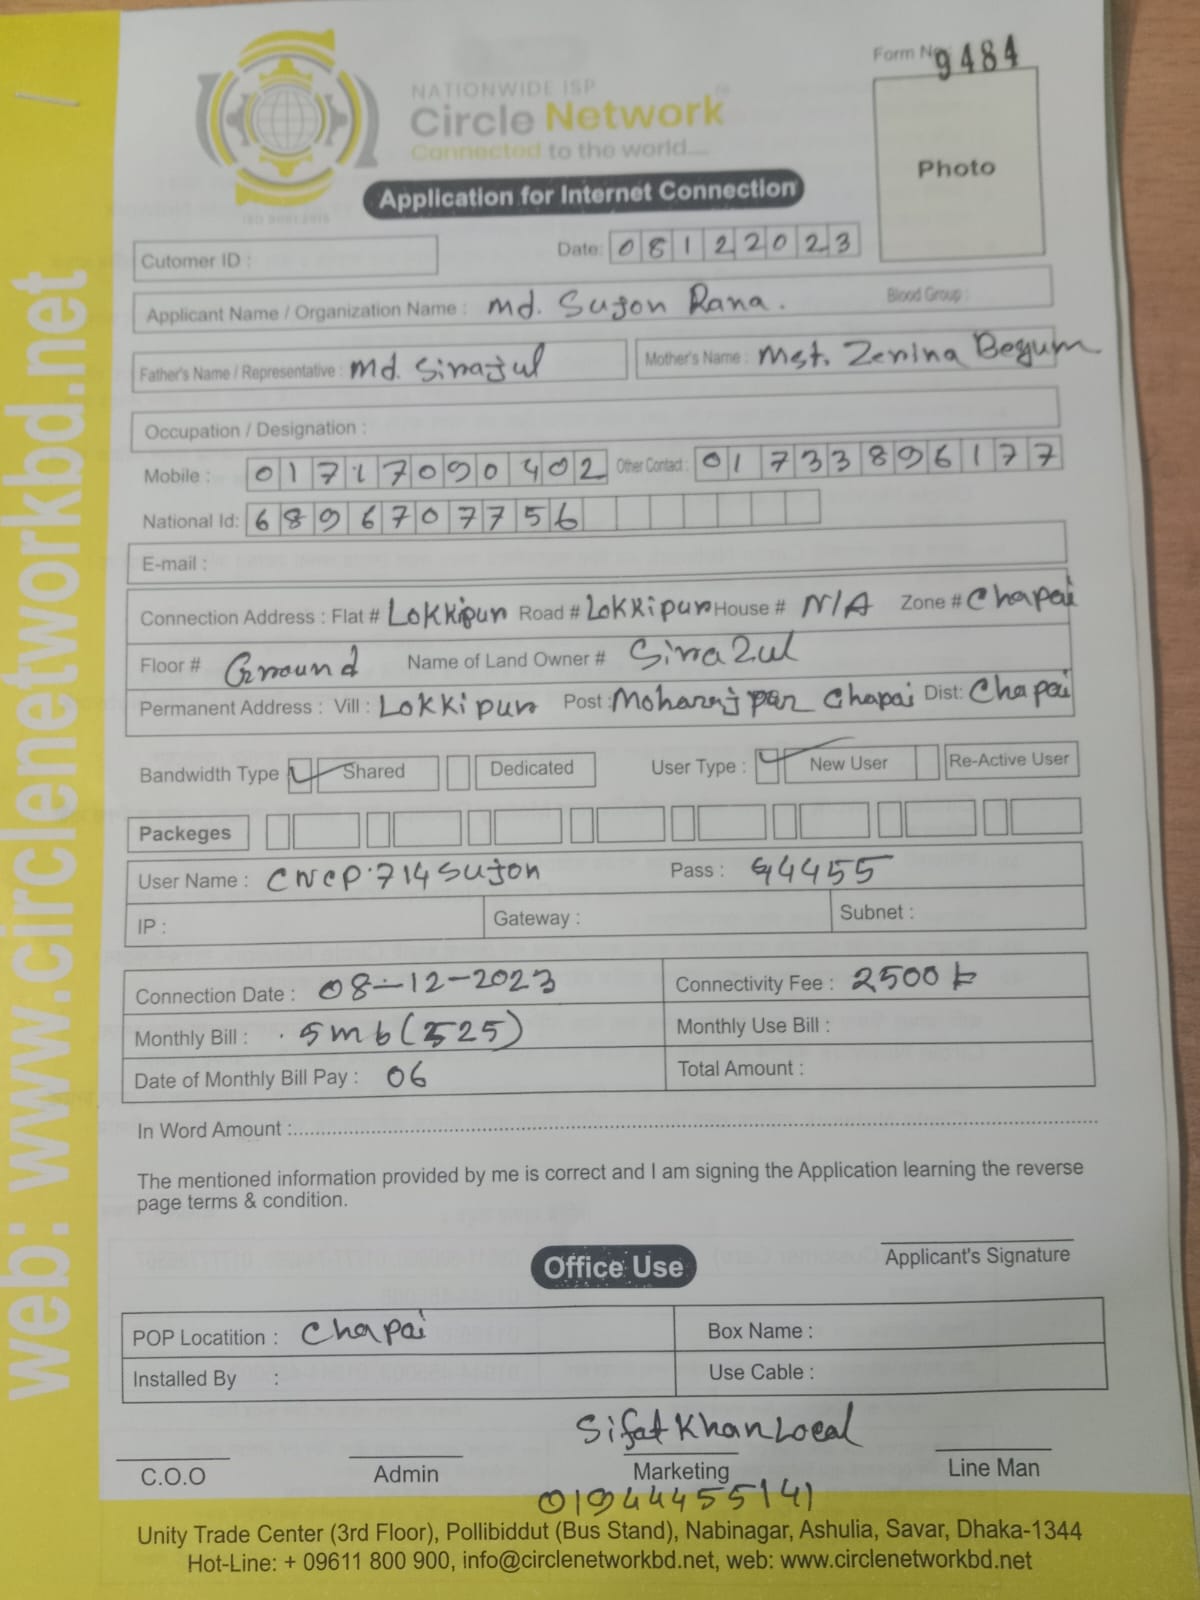 Form No 9484
NATIONWIDE ISP
Circle Network
Connected to the world....
Photo
Application for Internet Connection
ISO 9001:2015
Cutomer ID :
Date: 08122023
Applicant Name / Organization Name : Md. Sujon Rana. Blood Group :
Father's Name / Representative : Md. Sirajul Mother's Name : Mst. Zerina Begum
Occupation / Designation :
Mobile : 01717090402 Other Contact : 01733896177
National Id: 6896707756
E-mail :
Connection Address : Flat # Lokkipur Road # Lokkipur House # N/A Zone # Chapai
Floor # Ground Name of Land Owner # Sirazul
Permanent Address : Vill : Lokkipur Post : Moharajpur Chapai Dist: Chapai
Bandwidth Type Shared Dedicated User Type : New User Re-Active User
Packeges
User Name : CNCP.714sujon Pass : 44455
IP : Gateway : Subnet :
Connection Date : 08-12-2023 Connectivity Fee : 2500 ৳
Monthly Bill : . 5mb (525) Monthly Use Bill :
Date of Monthly Bill Pay : 06 Total Amount :
In Word Amount :
The mentioned information provided by me is correct and I am signing the Application learning the reverse
page terms & condition.
Applicant's Signature
Office Use
POP Locatition : Chapai Box Name :
Installed By : Use Cable :
Sifat Khan Local
C.O.O Admin Marketing Line Man
01944455141
Unity Trade Center (3rd Floor), Pollibiddut (Bus Stand), Nabinagar, Ashulia, Savar, Dhaka-1344
Hot-Line: + 09611 800 900, info@circlenetworkbd.net, web: www.circlenetworkbd.net
web: www.circlenetworkbd.net